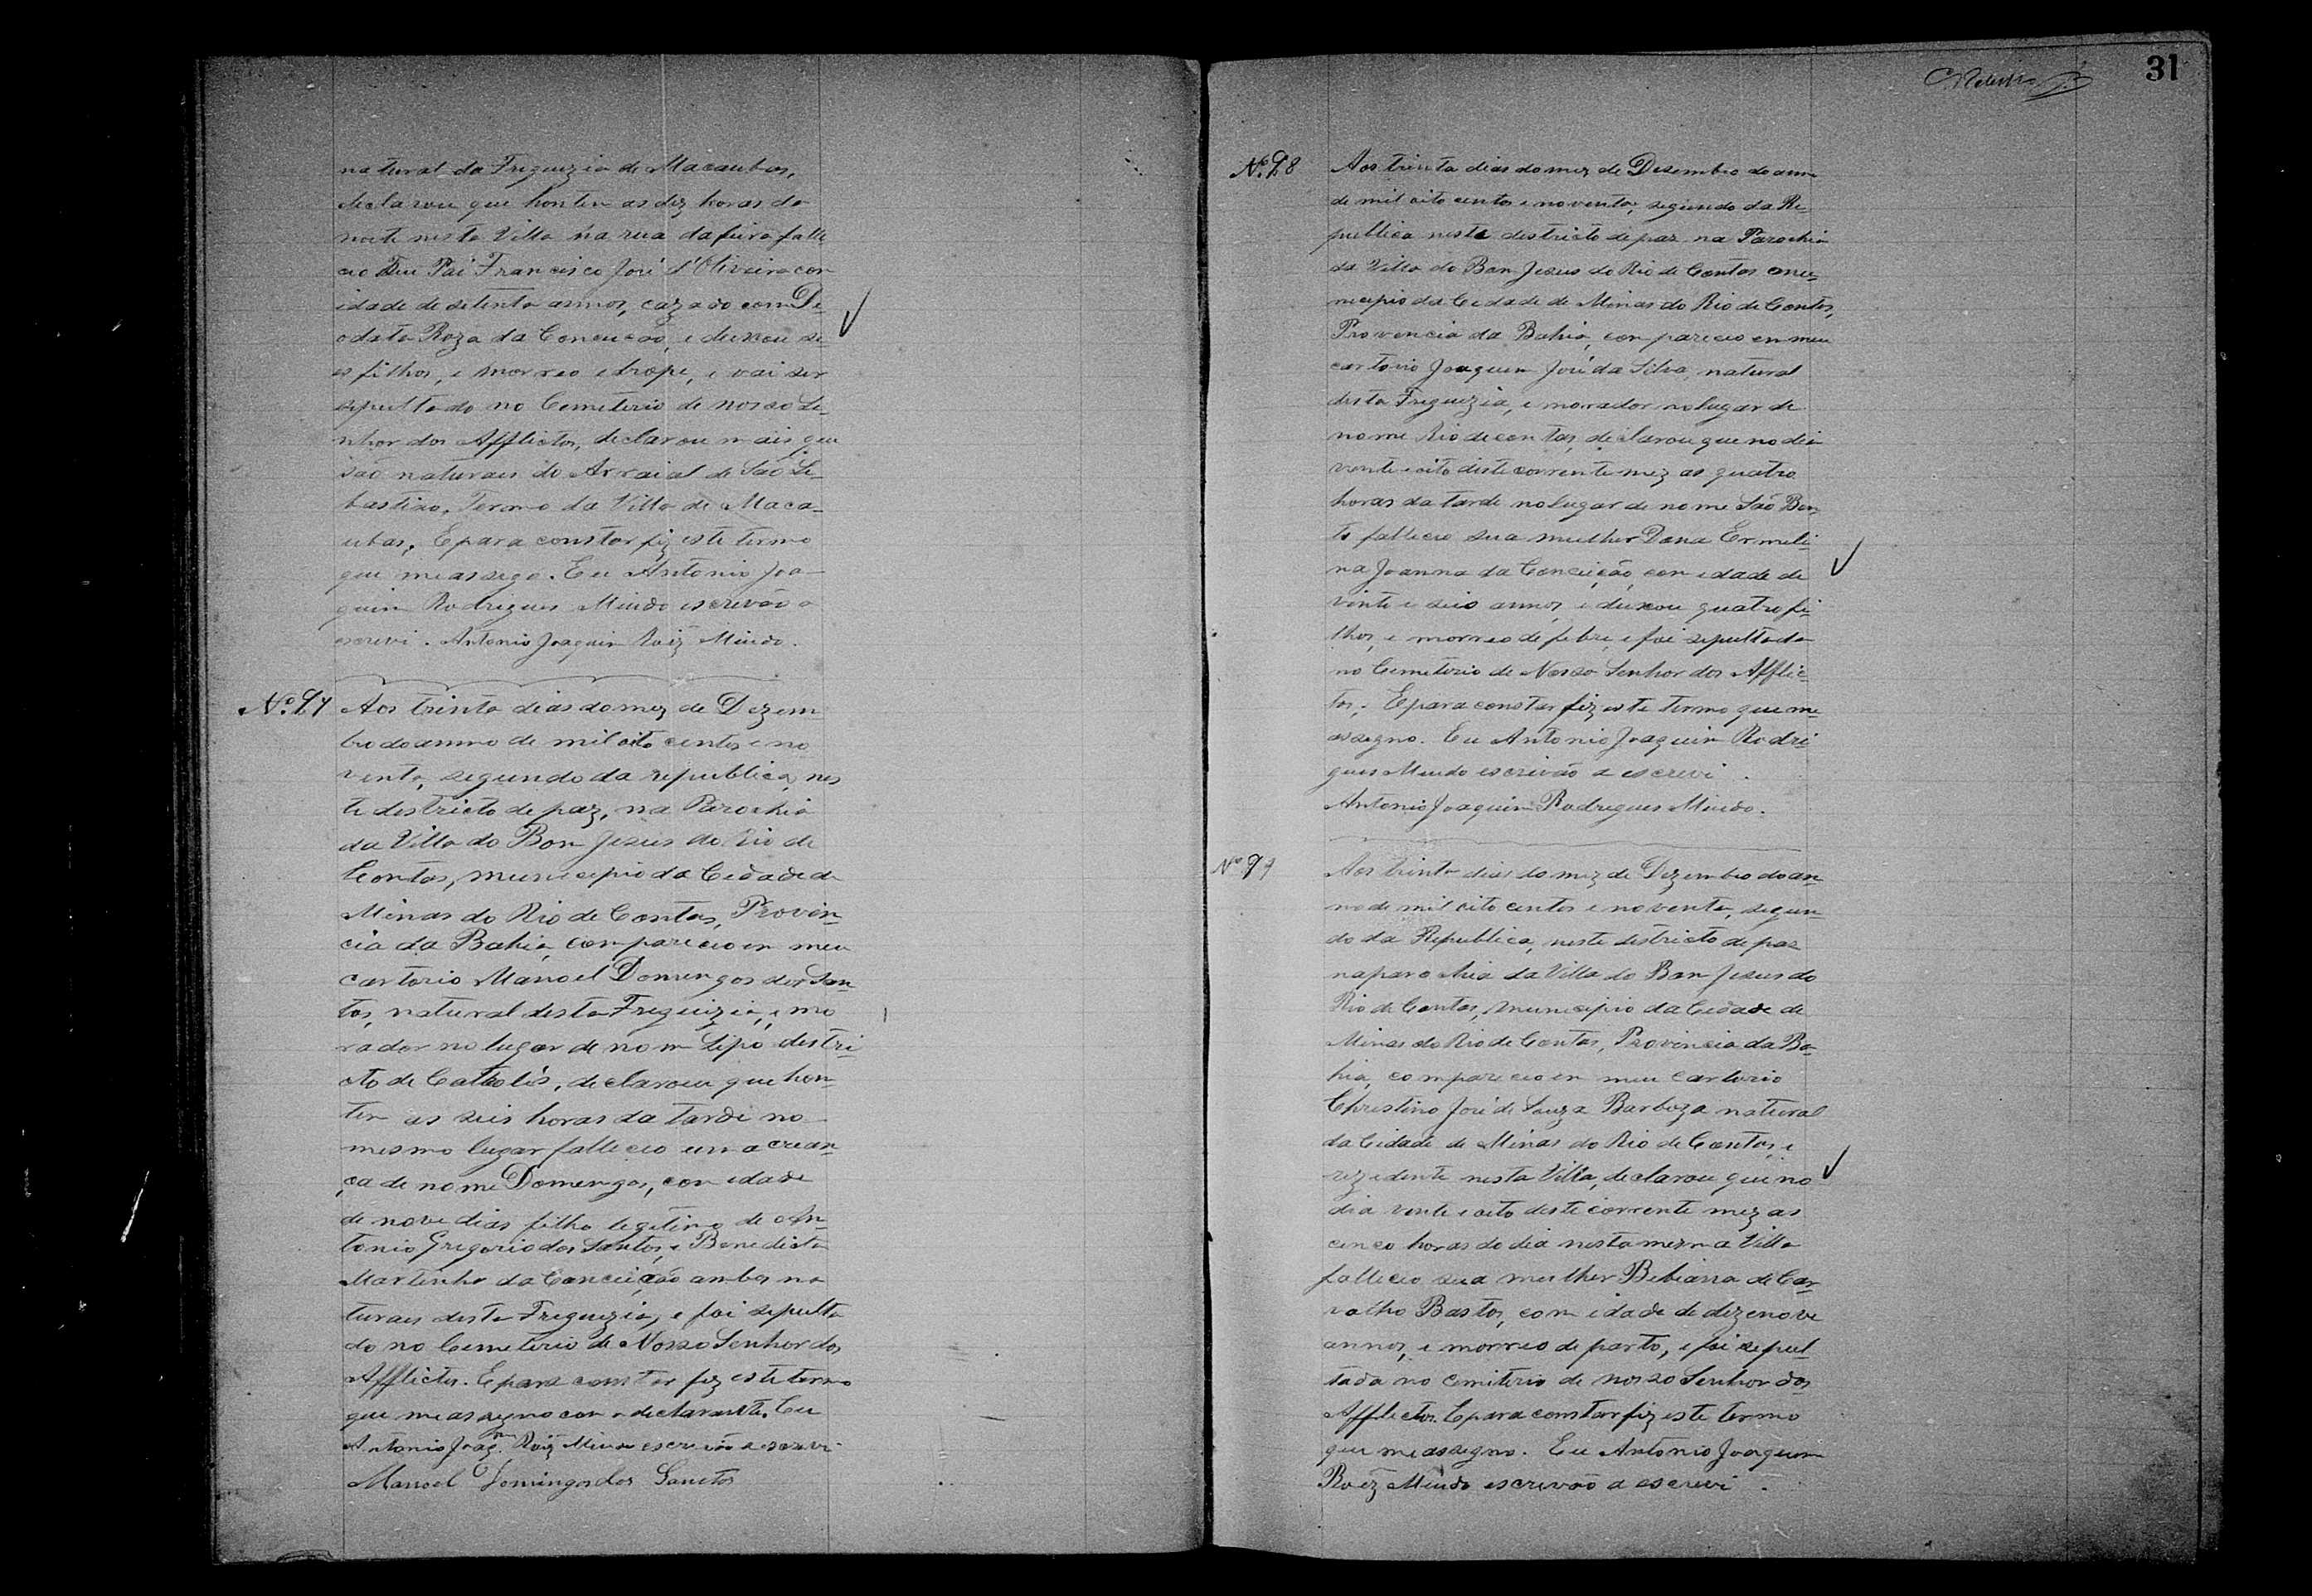 natural da Freguezia de Macaubas,
declarou que hontem as dez horas da
noite nesta Villa na rua da feira falle
ceo seu Pai Francisco José d'Oliveira com
idade de setenta annos, cazado com De
odata Roza da Conceição, e deixou se
is filhos, e morreo edrope, e vai ser
sepultado no Cemeterio de nosso Se-
nhor dos Afflictos, declarou mais que
são naturaes do Arraial de São Se-
bastião, Termo da Villa de Maca-
ubas, E para constar fiz este termo
que me assigo. Eu Antonio Joa-
quim Rodrigues Miudo escrivão a
escrevi. Antonio Joaquim Roiz Miudo.
Nº 27 Aos trinta dias do mez de Dezem
bro do anno de mil oito centos e no
venta, segundo da republica, nes
te destricto de paz, na Parochia
da Villa do Bom Jesus do Rio de
Contas, municipio da Cidade de
Minas do Rio de Contas, Provin-
cia da Bahia, compareceo em meu
cartorio Manoel Domingos dos San-
tos, natural desta Freguizia, e mo
rador no lugar de nom Sipó destri-
cto de Catholés, declarou que hon-
tem as seis horas da tarde no
mesmo lugar falleceo uma crean-
ça de nome Domingos, com idade
de nove dias filho legitimo de An-
tonio Gregorio dos Santos, e Benedicta
Martinha da Conceição ambos na
turaes desta Freguezia, e foi sepulta
do no Cemeterio de Nosso Senhor dos
Afflictos. E para constar fiz este termo
que me assigno com o declarante. Eu
Antonio Joaqm. Roiz Miudo escrivão a escrevi
Manoel Domingos dos Sanctos
31
Nº 28 Aos trinta dias do mez de Desembro do anno
de mil oito centos e noventa, segundo da Re-
publica neste destricto de paz na Parochia
da Villa do Bom Jesus do Rio de Contas mu-
nicipio da Cidade de Minas do Rio de Contas,
Provencia da Bahia, compareceo em meu
cartorio Joaquim José da Silva, natural
desta Freguezia, e morador no lugar de
nome Rio de contas, declarou que no dia
vente e oito deste corrente mez as quatro
horas da tarde no lugar de nome São Ben-
to falleceo sua mulher Dona Ermeli-
na Joanna da Conceição, com idade de
vinte e seis annos, e deixou quatro fi-
lhos, e morreo de febre, e foi sepultada
no Cemeterio de Nosso Senhor dos Afflic-
tos. E para constar fiz este termo que me
assegno. Eu Antonio Joaquim Rodri
gues Miudo escrivão a escrevi.
Antonio Joaquim Rodrigues Miudo.
Nº 29 Aos trinta dias do mez de Dezembro do an-
no de mil oito centos e noventa, segun-
do da Republica, neste destricto de paz
na parochia da Villa do Bom Jesus do
Rio de Contas, municipio da Cidade de
Minas do Rio de Contas, Provincia da Ba-
hia, compareceo em meu cartorio
Christino José de Souza Barboza natural
da Cidade de Minas do Rio de Contas, e
rezidente nesta Villa, declarou que no
dia vente e oito deste corrente mez as
cinco horas do dia nesta mesma Villa
falleceo sua mulher Bebiana de Car-
valho Bastos, com idade de dezenove
annos, e morreo de parto, e foi sepul-
tada no cemiterio de nosso Senhor dos
Afflictos. E para constar fiz este termo
que me assegno. Eu Antonio Joaquim
Roiz Miudo escrivão a escrevi.